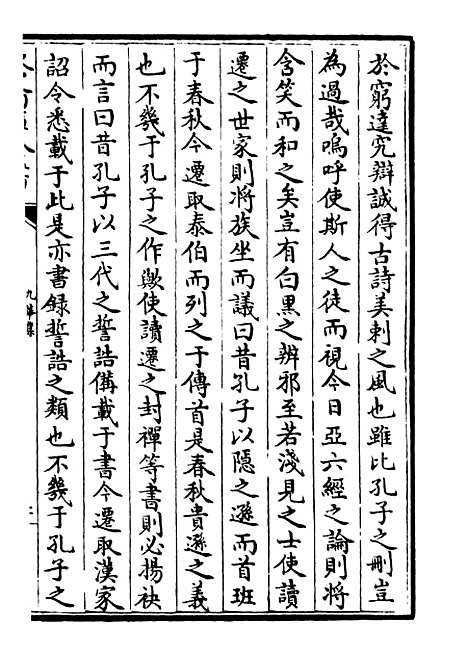 於窮達究辯誠得古詩美刺之風也雖比孔子之刪豈
為過哉嗚呼使斯人之徒而視今日亞六經之論則將
含笑而和之矣豈有白黒之辨邪至若淺見之士使讀
遷之世家則將族坐而議曰昔孔子以隱之遜而首班
于春秋今遷取泰伯而列之于傳首是春秋貴遜之義
也不幾于孔子之作歟使讀遷之封禪等書則必揚袂
而言曰昔孔子以三代之誓誥備載于書今遷取漢家
詔令悉載于此是亦書録誓誥之類也不幾于孔子之